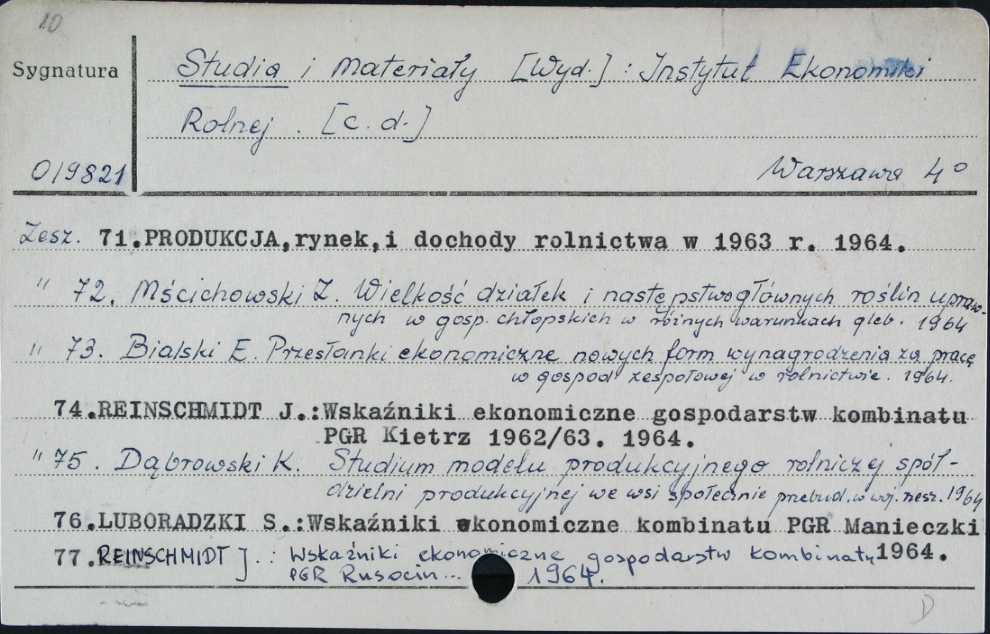 10
Sygnatura
Studia i Materiały [Wyd.]: Instytut Ekonomiki
Rolnej. [c.d.]
0/9821
Warszawa 4°
Zesz. 71.PRODUKCJA,rynek,i dochody rolnictwa w 1963 r. 1964.
" 72. Mścichowski Z. Wielkość działek i następstwo głównych roślin upraw-
nych w gosp. chłopskich w różnych warunkach gleb. 1964
" 73. Bialski E. Przesłanki ekonomiczne nowych form wynagrodzenia za pracę
w gospod zespołowej w rolnictwie. 1964.
74.REINSCHMIDT J.:Wskaźniki ekonomiczne gospodarstw kombinatu
PGR Kietrz 1962/63. 1964.
" 75. Dąbrowski K. Studium modelu produkcyjnego rolniczej spół-
dzielni produkcyjnej we wsi społecznie przebud. w woj. rzesz. 1964
76.LUBORADZKI S.:Wskaźniki ekonomiczne kombinatu PGR Manieczki
1964.
77. REINSCHMIDT J.: Wskaźniki ekonomiczne gospodarstw kombinatu
PGR Rusocin... 1964.
D